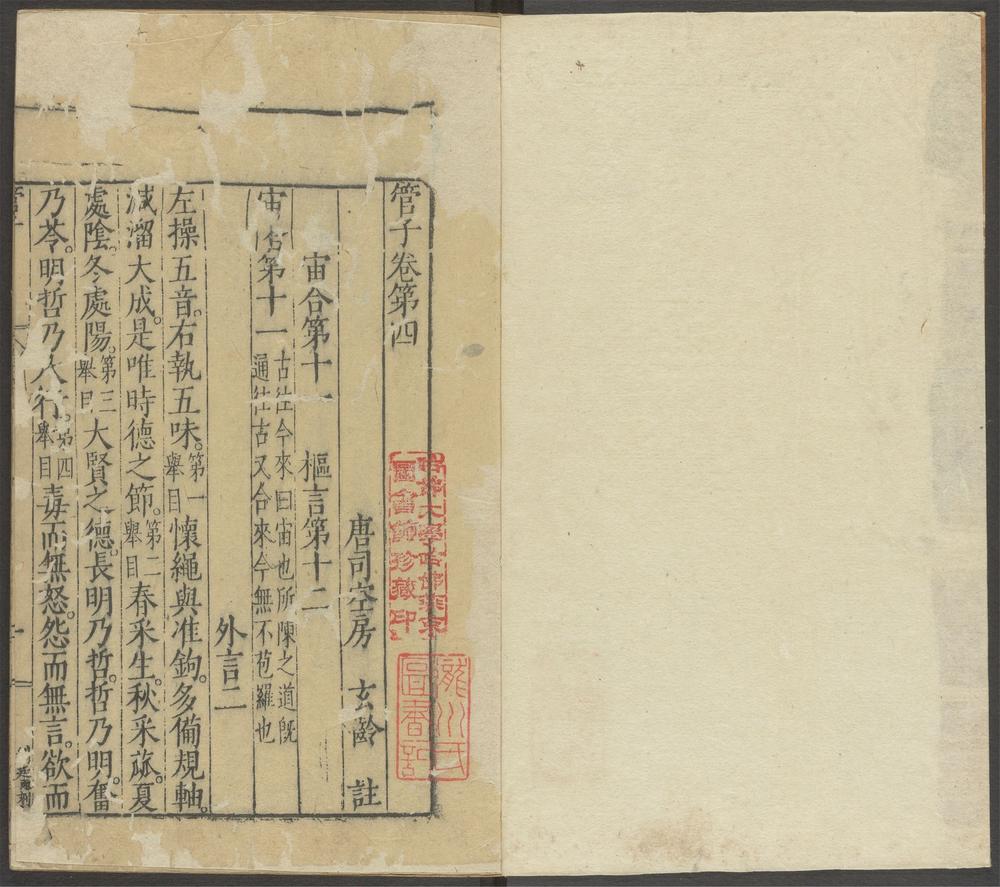 管子卷第四
唐司空房 玄齡 註
宙合第十一 樞言第十二
外言二
宙合第十一 古往今來曰宙也所陳之道既通往古又合來今無不苞羅也
左操五音。右執五味。第一舉目懷繩與准鉤。多備規軸。
減溜大成。是唯時德之節。第二舉目春采生。秋采蓏。夏
處陰。冬處陽。第三舉目大賢之德。長明乃哲。哲乃明。奮
乃苓。明哲乃大行。第四舉目毒而無怒。怨而無言。欲而
哈佛大學哈佛燕京
圖書館珍藏印